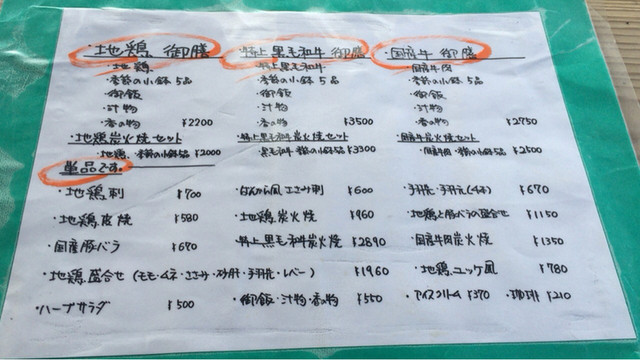 ・地鶏 御膳 ・特上黒毛和牛 御膳 ・国産牛 御膳
・地鶏 ・特上黒毛和牛 ・国産牛肉
・季節の小鉢5品 ・季節の小鉢5品 ・季節の小鉢5品
・御飯 ・御飯 ・御飯
・汁物 ・汁物 ・汁物
・香の物 ¥2200 ・香の物 ¥3500 ・香の物 ¥2750
・地鶏炭火焼セット ・特上黒毛和牛炭火焼セット ・国産牛炭火焼セット
・地鶏・季節の小鉢5品 ¥2000 黒毛和牛・季節の小鉢5品 ¥3300 ・国産牛肉・季節の小鉢5品 ¥2500
単品です。
・地鶏刺 ¥700 ・はんから風ささみ刺 ¥600 ・手羽先・手羽元(4本) ¥670
・地鶏皮焼 ¥580 ・地鶏炭火焼 ¥960 ・地鶏と豚バラの盛合せ ¥1150
・国産豚バラ ¥670 ・特上黒毛和牛炭火焼 ¥2890 ・国産牛肉炭火焼 ¥1350
・地鶏盛合せ(モモ・ムネ・ささみ・砂肝・手羽先・レバー) ¥1960 ・地鶏ユッケ風 ¥780
・ハーブサラダ ¥500 ・御飯・汁物・香の物 ¥550 ・アイスクリーム ¥370 ・珈琲 ¥210